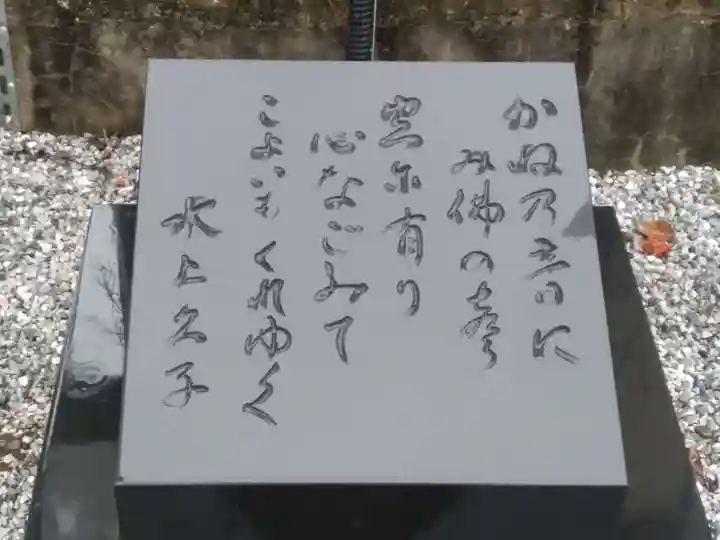 かね乃音に
み佛の聲
尓有り
心なごみて
こよいもくれゆく
水上久子